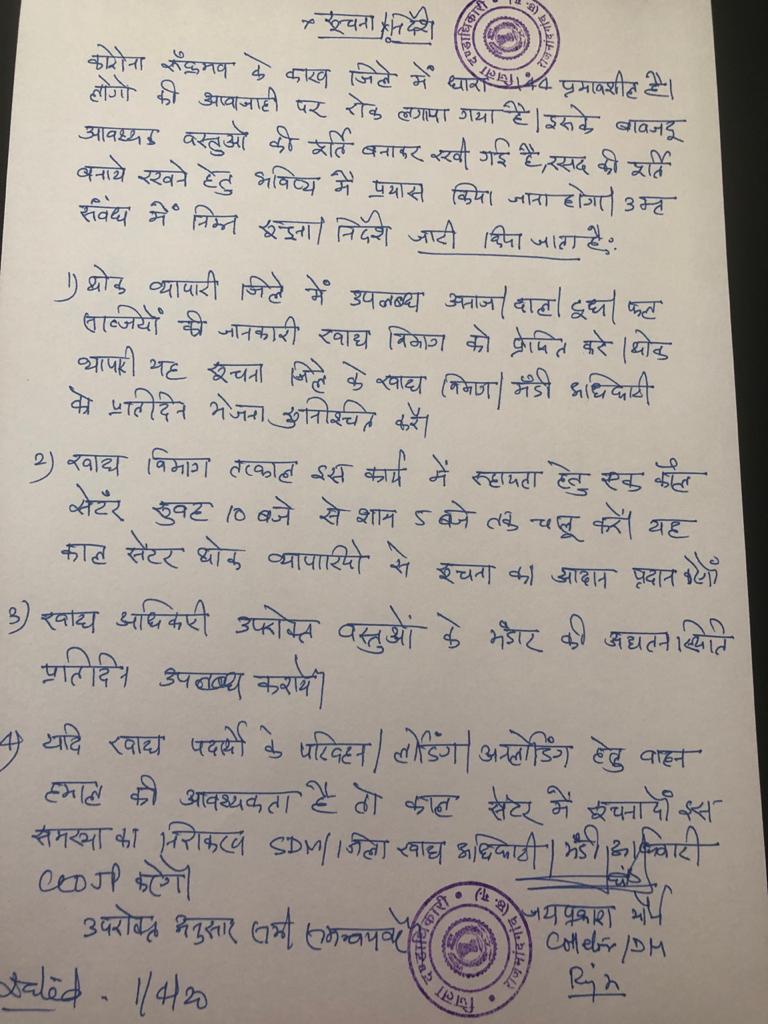 सूचना/निर्देश
जिला दण्डाधिकारी राजनांदगांव (छ.ग.)
कोरोना संक्रमण के कारण जिले में धारा 144 प्रभावशील है।
लोगों की आवाजाही पर रोक लगाया गया है। इसके बावजूद
आवश्यक वस्तुओं की पूर्ति बनाकर रखी गई है, रसद की पूर्ति
बनाये रखने हेतु भविष्य में प्रयास किया जाना होगा। उक्त
संबंध में निम्न सूचना/निर्देश जारी किया जाता है:
1) थोक व्यापारी जिले में उपलब्ध अनाज/दाल/दूध/फल
सब्जियों की जानकारी खाद्य विभाग को प्रेषित करे। थोक
व्यापारी यह सूचना जिले के खाद्य विभाग/मंडी अधिकारी
को प्रतिदिन भेजना सुनिश्चित करें।
2) खाद्य विभाग तत्काल इस कार्य में सहायता हेतु एक कॉल
सेंटर सुबह 10 बजे से शाम 5 बजे तक चालू करें। यह
काल सेंटर थोक व्यापारियों से सूचना का आदान प्रदान करेंगे।
3) खाद्य अधिकारी उपरोक्त वस्तुओं के भंडार की अद्यतन स्थिति
प्रतिदिन उपलब्ध करायें।
4) यदि खाद्य पदार्थों के परिवहन/लोडिंग/अनलोडिंग हेतु वाहन
हमाल की आवश्यकता है तो काल सेंटर में सूचना दें। इस
समस्या का निराकरण SDM/जिला खाद्य अधिकारी/मंडी अधिकारी
करेंगे।
उपरोक्त अनुसार सभी
जयप्रकाश मौर्य
Collector/DM
Rjn
जिला दण्डाधिकारी राजनांदगांव (छ.ग.)
Dated - 1/4/20